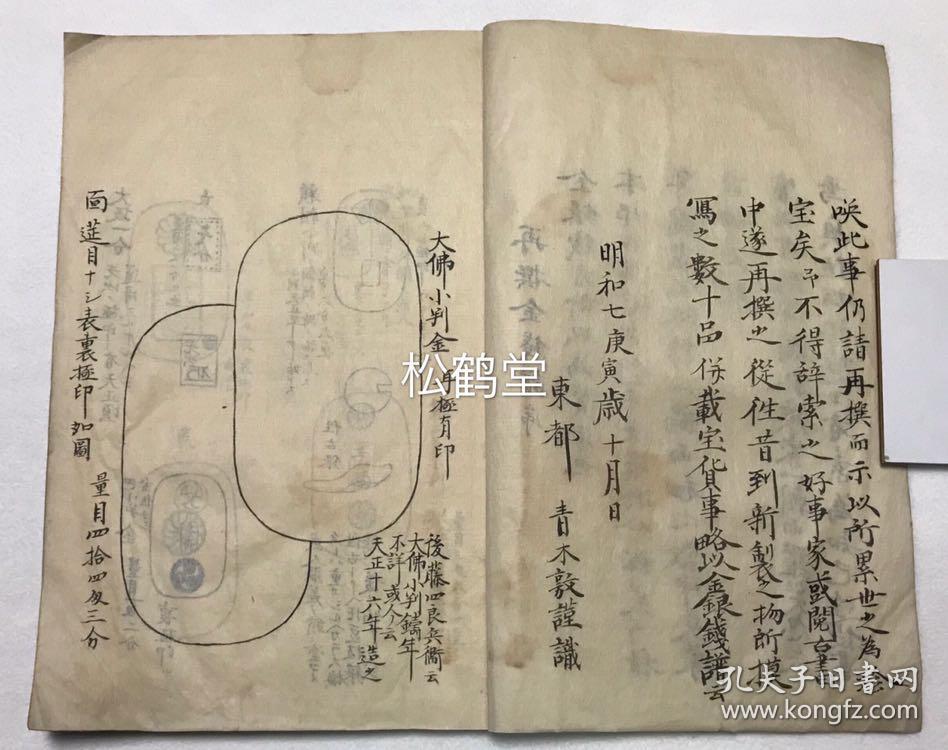 唉此事仍請再撰而示以所累世之為
宝矣予不得辞索之好事家或閲古書
中遂再撰之從徃昔到新製之物所摸
寫之數十品併載宝貨事略以金銀錢譜云
明和七庚寅歳十月日
東都 青木敦謹識
大佛小判金 再極有印
後藤四良兵衛云
大佛小判鑄年
不詳或人云
天正十六年造之
面莚目十三表裏極印如圖
量目四拾四匁三分
松鹤堂
孔夫子旧书网
www.kongfz.com